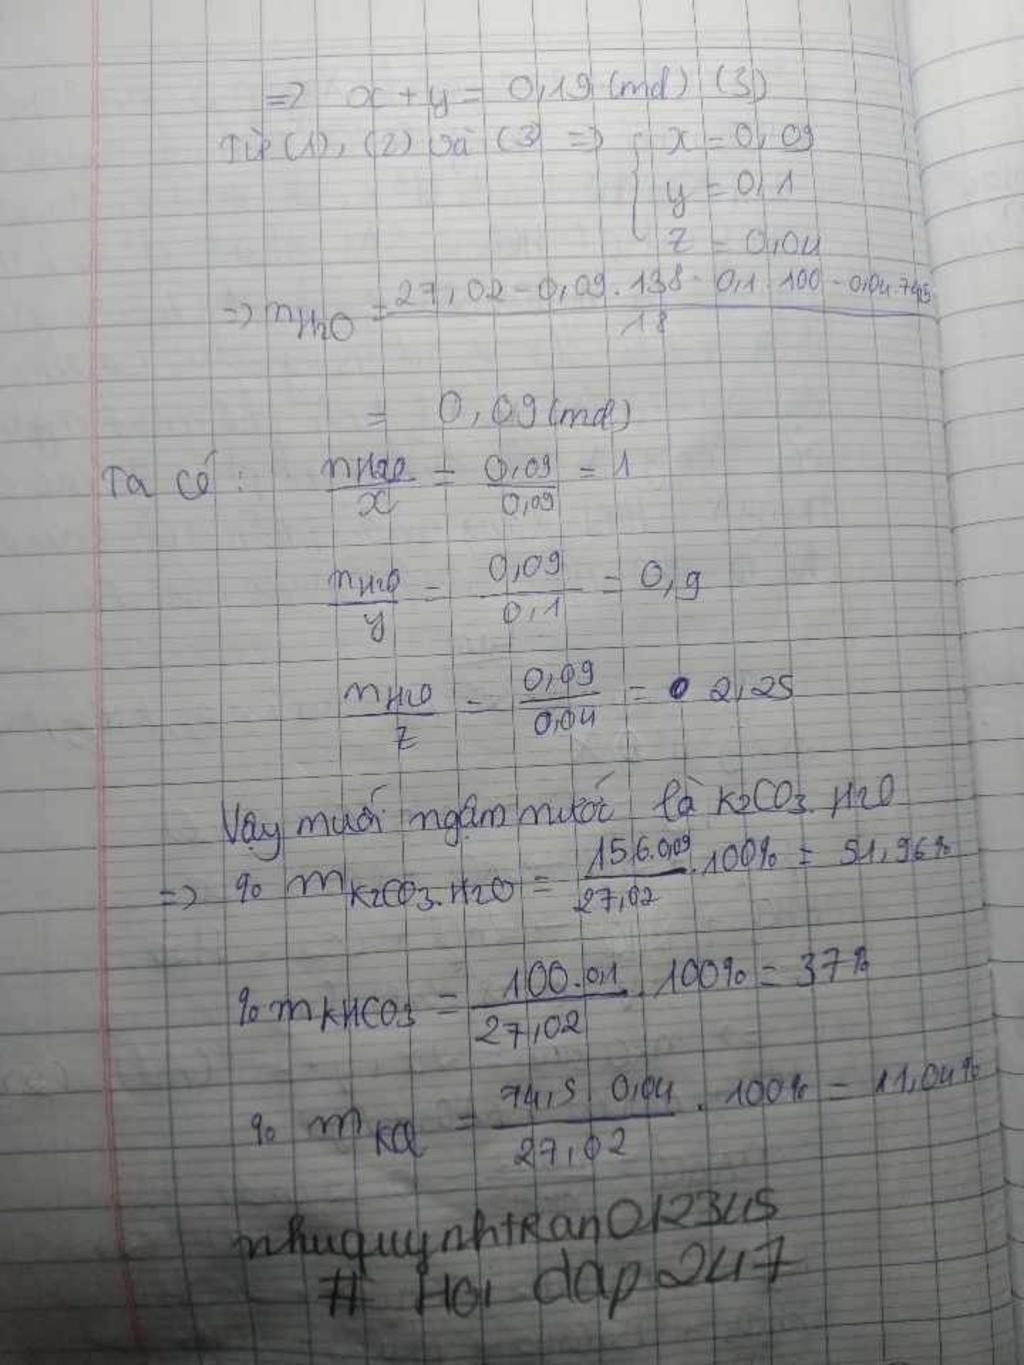 => x + y = 0,19 (mol) (3)
Từ (1), (2) và (3) => { x = 0,09
y = 0,1
z = 0,04
=> nH2O = 27,02 - 0,09.138 - 0,1.100 - 0,04.74,5 / 18
= 0,09 (mol)
Ta có: nH2O / x = 0,09 / 0,09 = 1
nH2O / y = 0,09 / 0,1 = 0,9
nH2O / z = 0,09 / 0,04 = 2,25
Vậy muối ngậm nước là K2CO3.H2O
=> % mK2CO3.H2O = 156.0,09 / 27,02 .100% = 51,96%
% mKHCO3 = 100.0,1 / 27,02 . 100% = 37%
% mKCl = 74,5 0,04 / 27,02 . 100% = 11,04%
nhuquynhtRan012345
# Hoi dap 247